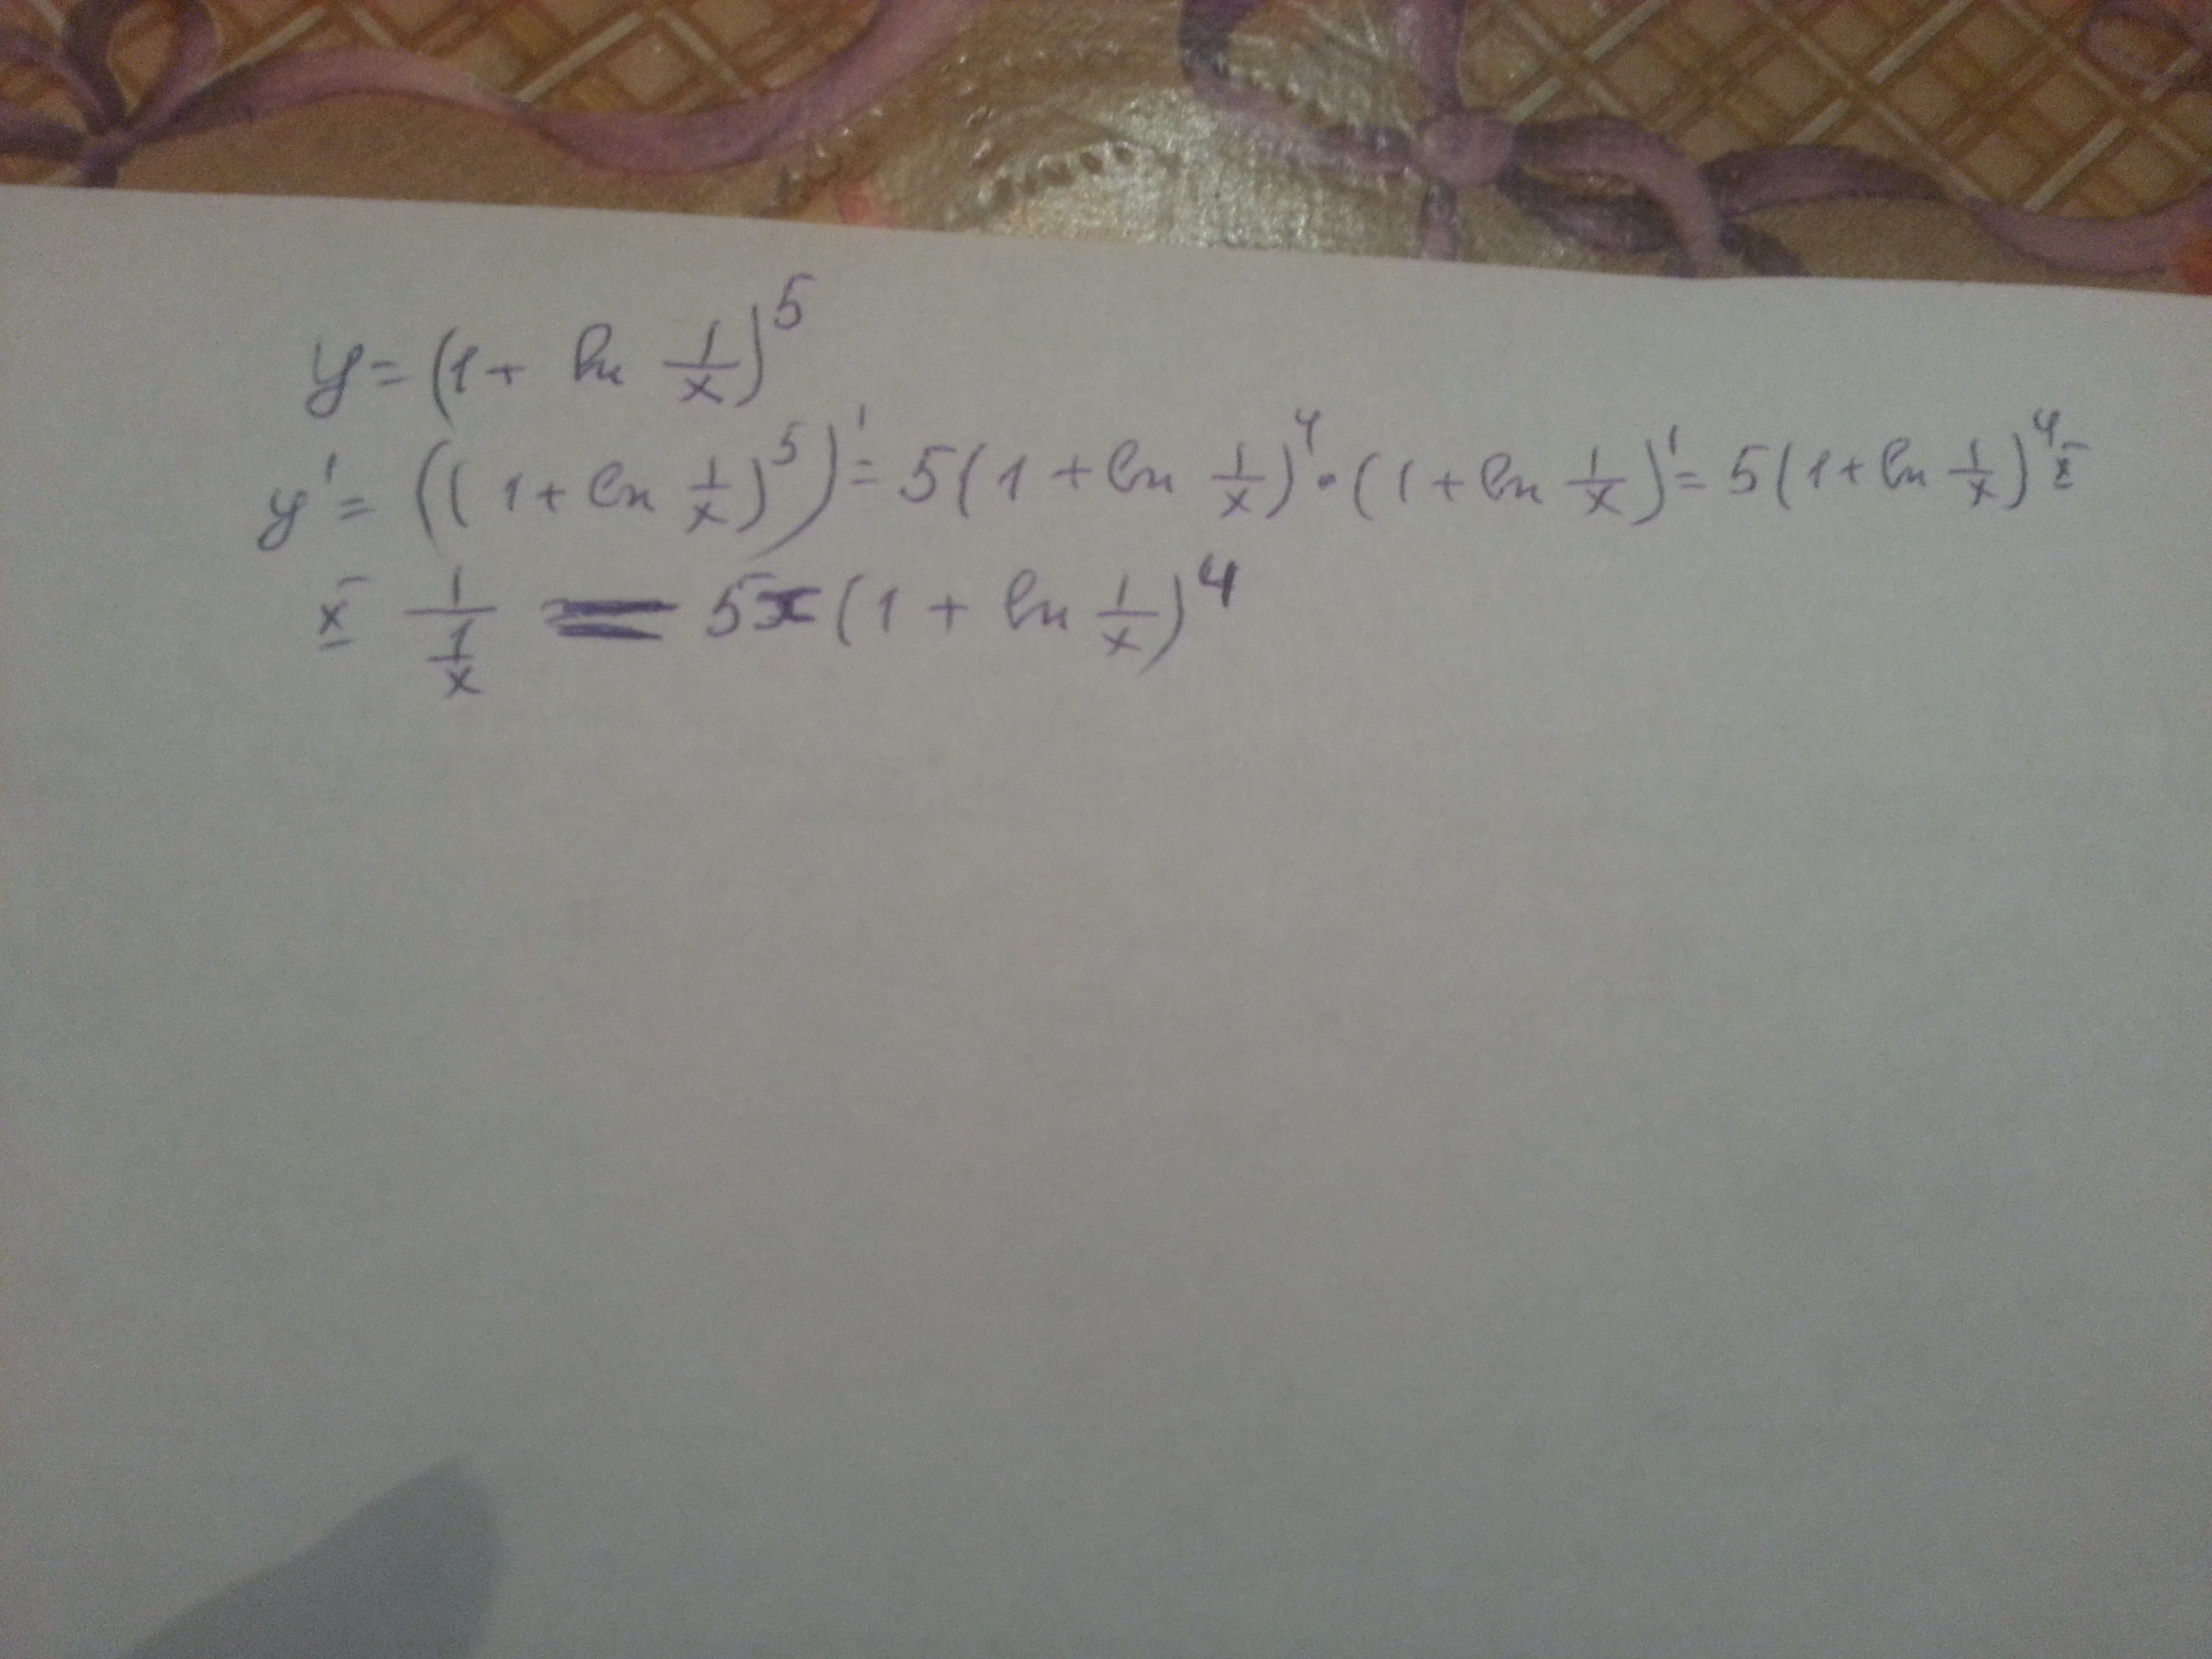 y = (1 + ln 1/x)^5
y' = ((1 + ln 1/x)^5)' = 5(1 + ln 1/x)^4 · (1 + ln 1/x)' = 5(1 + ln 1/x)^4 x
x 1/(1/x) = 5x(1 + ln 1/x)^4